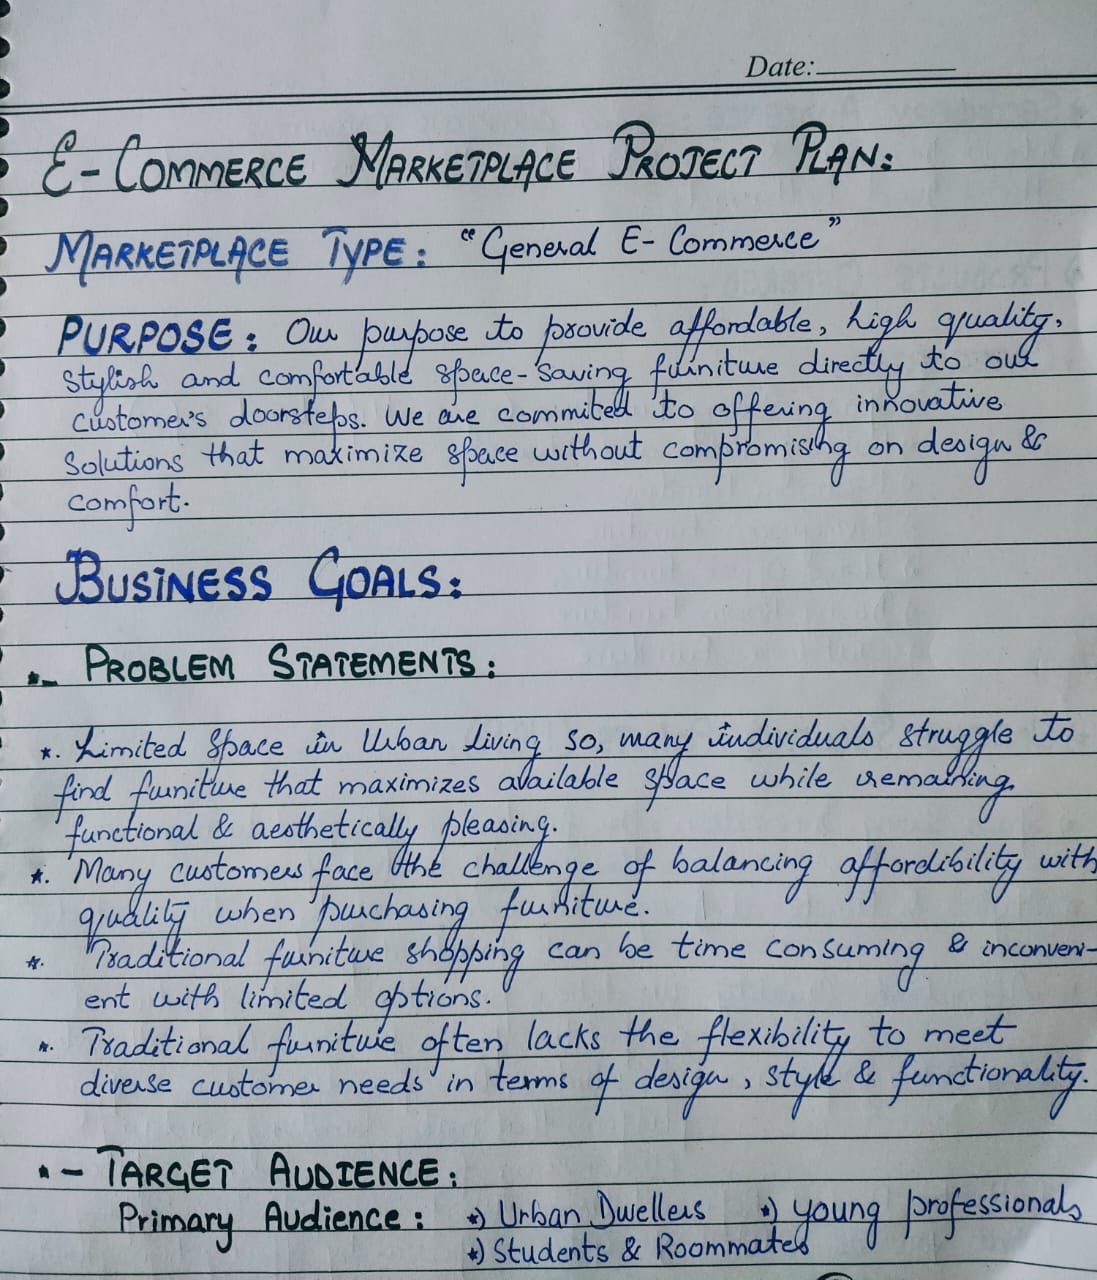 Date:
E-COMMERCE MARKETPLACE PROJECT PLAN:
MARKETPLACE TYPE: "General E-Commerce"
PURPOSE: Our purpose to provide affordable, high quality,
stylish and comfortable space-saving furniture directly to our
customer's doorsteps. We are commited to offering innovative
Solutions that maximize space without compromising on design &
comfort.
BUSINESS GOALS:
*- PROBLEM STATEMENTS:
*. Limited Space in Urban living so, many individuals struggle to
find furniture that maximizes available space while remaining
functional & aesthetically pleasing.
*. Many customers face the challenge of balancing affordibility with
quality when purchasing furniture.
*. Traditional furniture shopping can be time consuming & inconveni-
ent with limited options.
*. Traditional furniture often lacks the flexibility to meet
diverse customer needs in terms of design, style & functionality.
*- TARGET AUDIENCE:
Primary Audience: *) Urban Dwellers *) young professionals
*) Students & Roommates